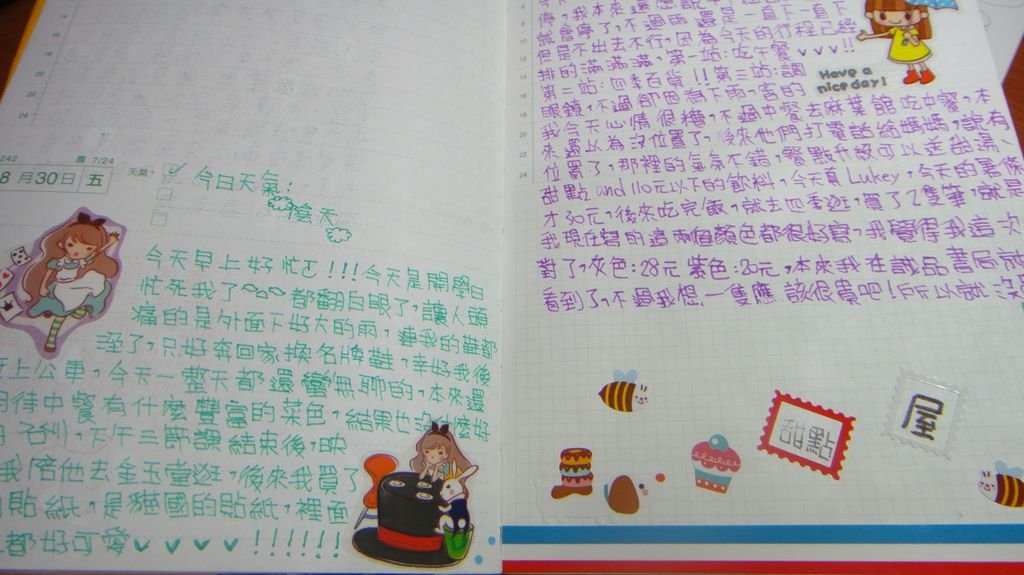 24
242
農 7/24
8 月 30 日 五
天氣
今日天氣:
陰天
今天早上好忙ㄛ!!!今天是開學日
忙死我了 都翻白眼了,讓人頭
痛的是外面下好大的雨,連我的鞋都
溼了,只好奔回家換名牌鞋,幸好我後
上公車,今天一整天都還蠻無聊的,本來還
期待中餐有什麼豐富的菜色,結果也沒什麼好
下午三節課結束後,
我陪他去金玉堂逛,後來我買了
貼紙,是貓國的貼紙,裡面
都好可愛vvvv!!!!!!
停,我本來還應
就會停了,不過雨還是一直下一直下
但是不出去不行,因為今天的行程已經
排的滿滿滿,第一站:吃午餐vvv!!
第二站:四季百貨!!第三站:調
眼鏡,不過卻因為下雨,害的
我今天心情很糟,不過中餐去麻葉館吃中餐,本
來還以為沒位置了,後來他們打電話給媽媽,說有
位置了,那裡的氣氛不錯,餐點升級可以送甜湯、
甜點 and 110元以下的飲料,今天真Lukey,今天的薯條
才30元,後來吃完飯,就去四季逛,買了2隻筆,就是
我現在寫的這兩個顏色都很好寫,我覺得我這次
對了,灰色:28元 紫色:20元,本來我在誠品書局就
看到了,不過我想一隻應該很貴吧!所以就沒
Have a
nice day!
甜點
屋